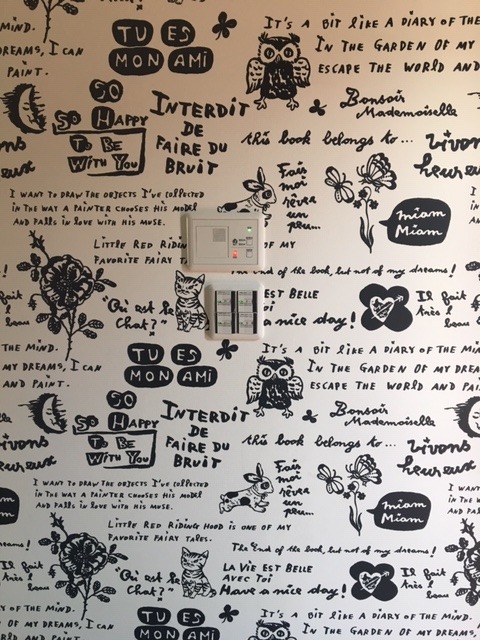 MIND.
TU ES
MON AMI
IT'S A BIT LIKE A DIARY OF THE
DREAMS, I CAN
IN THE GARDEN OF MY
PAINT.
ESCAPE THE WORLD AND
SO
SO HAPPY
TO BE
WITH YOU
INTERDIT
DE
FAIRE DU
BRUIT
Bonsoir
Mademoiselle
this book belongs to...
vivons
heureux
Fais
moi
rêver
un
peu...
I WANT TO DRAW THE OBJECTS I'VE COLLECTED
IN THE WAY A PAINTER CHOOSES HIS MODEL
AND FALLS IN LOVE WITH HIS MUSE.
miam
Miam
LITTLE RED RIDIN
OF MY
FAVORITE FAIRY T
end of the book, but not of my dreams!
fait
beau
"Où est le
Chat?"
EST BELLE
OI
a nice day!
Il fait
très l
THE MIND.
TU ES
MON AMI
IT'S A BIT LIKE A DIARY OF THE MIN
MY DREAMS, I CAN
IN THE GARDEN OF MY DREA
AND PAINT.
ESCAPE THE WORLD AND PAI
SO
SO HAPPY
TO BE
WITH YOU
INTERDIT
DE
FAIRE DU
BRUIT
Bonsoir
Mademoiselle
this book belongs to...
vivons
heureux
vivons
heureux
Fais
moi
rêver
un
peu...
I WANT TO DRAW THE OBJECTS I'VE COLLECTED
IN THE WAY A PAINTER CHOOSES HIS MODEL
AND FALLS IN LOVE WITH HIS MUSE.
miam
Miam
I WANT
IN THE
AND
LITTLE RED RIDING HOOD IS ONE OF MY
FAVORITE FAIRY TALES.
The End of the book, but not of my dreams!
Il fait
très l
beau
"Où est le
Chat?"
LA VIE EST BELLE
AVEC TOI
Have a nice day!
Il fait
très l
Y OF THE MIND.
TU ES
MON AMI
IT'S A BIT LIKE A DIARY OF THE MIND.
OF MY DREAMS, I CAN
IN THE GARDEN OF MY DREAMS,